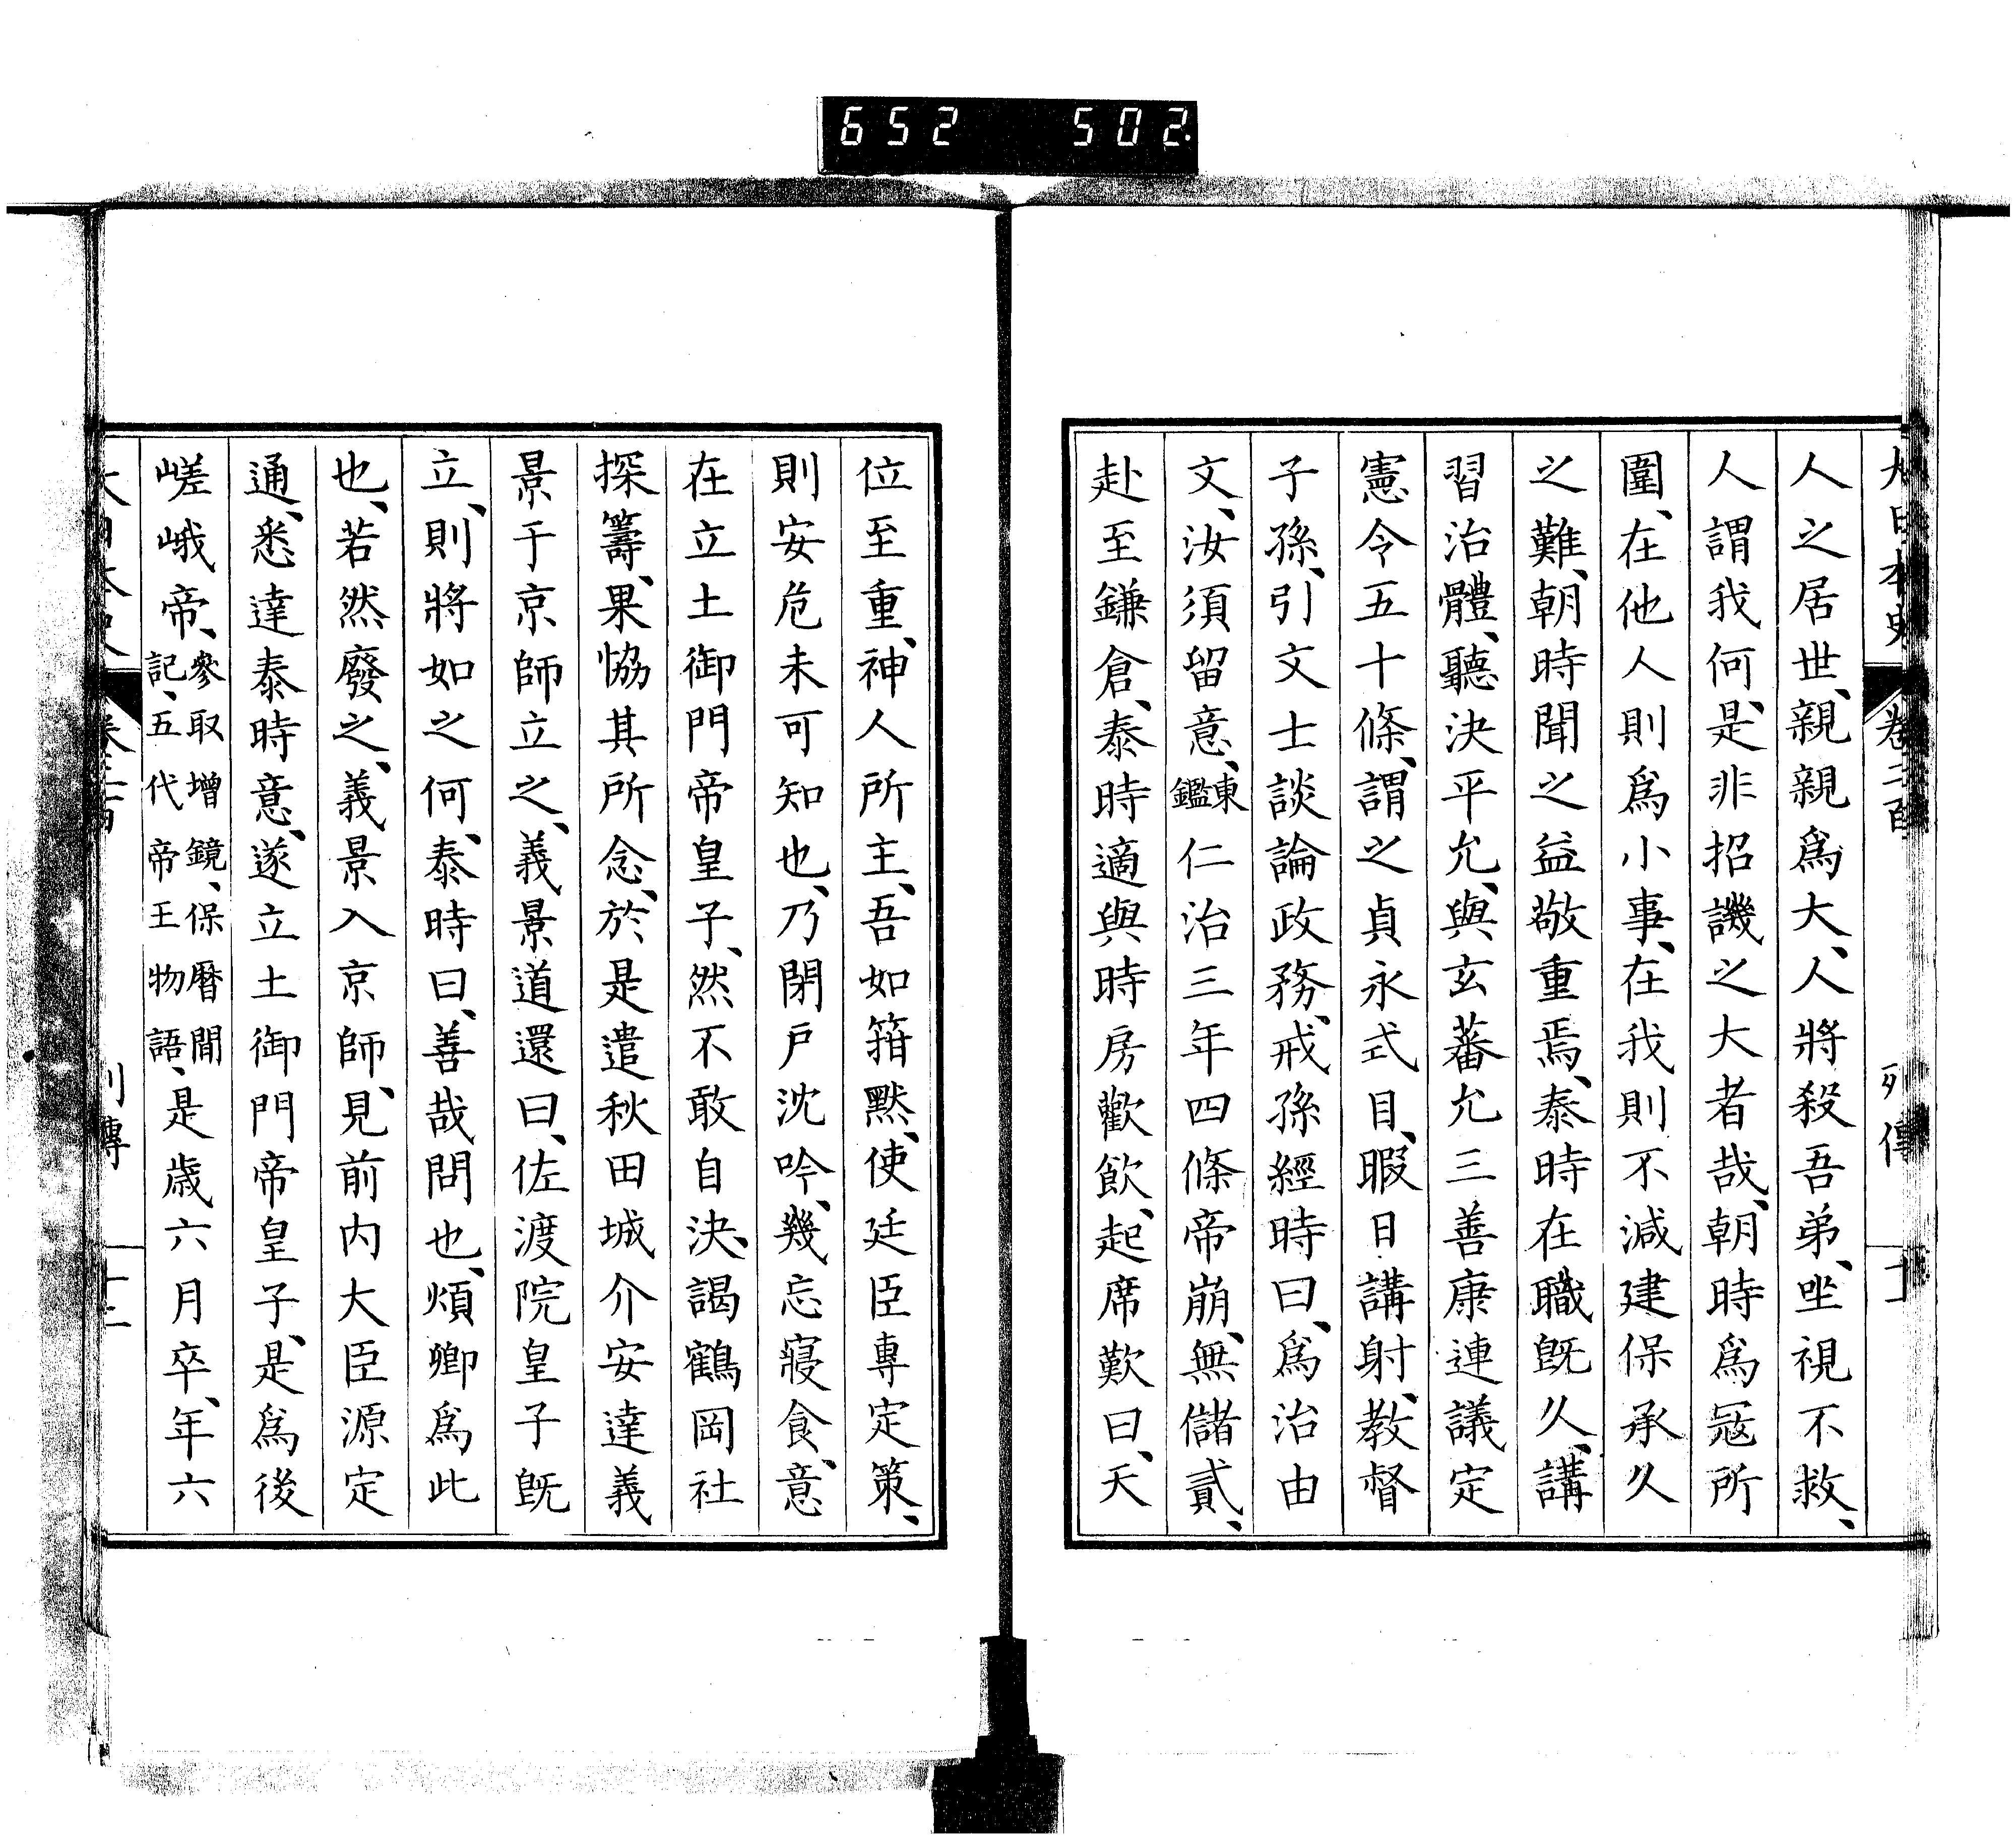 652 502
大日本史 卷二百 列傳 十
人之居世、親親爲大、人將殺吾弟、坐視不救、
人謂我何、是非招譏之大者哉、朝時爲寇所
圍、在他人則爲小事、在我則不減建保承久
之難、朝時聞之益敬重焉、泰時在職既久、講
習治體、聽決平允、與玄蕃允三善康連議定
憲令五十條、謂之貞永式目、暇日講射、教督
子孫、引文士談論政務、戒孫經時曰、爲治由
文、汝須留意、東鑑仁治三年四條帝崩、無儲貳、
赴至鎌倉、泰時適與時房歡飲、起席歎曰、天
位至重、神人所主、吾如箝默、使廷臣專定策、
則安危未可知也、乃閉戶沈吟、幾忘寢食、意
在立土御門帝皇子、然不敢自決、謁鶴岡社
探籌、果恊其所念、於是遣秋田城介安達義
景于京師立之、義景道還曰、佐渡院皇子既
立、則將如之何、泰時曰、善哉問也、煩卿爲此
也、若然廢之、義景入京師、見前内大臣源定
通、悉達泰時意、遂立土御門帝皇子、是爲後
嵯峨帝、參取增鏡、保曆間記、五代帝王物語、是歲六月卒、年六
大日本史 卷二百 列傳 十二